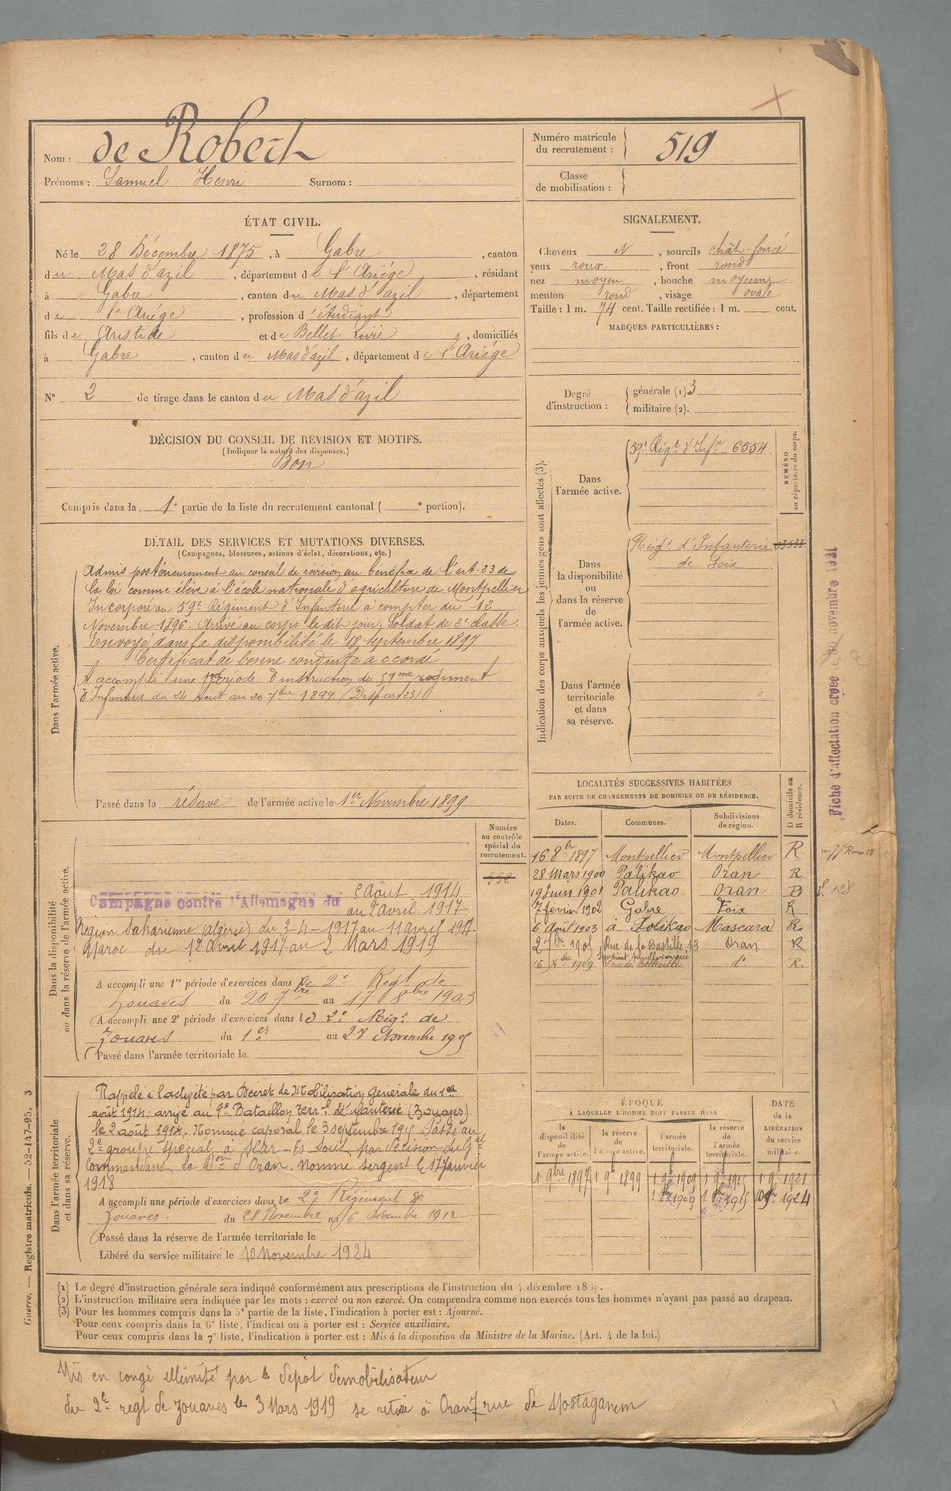 Nom : de Robert
Prénoms : Samuel Henri Surnom :
Numéro matricule du recrutement : 519
Classe de mobilisation :
ÉTAT CIVIL.
Né le 28 Décembre 1875, à Gabre, canton
du Mas d'azil, département de l'Ariége, résidant
à Gabre, canton du Mas d'azil, département
de l'Ariége, profession d'étudiant
fils de Aristide et de Bellet Livie, domiciliés
à Gabre, canton du Mas d'azil, département de l'Ariége
N° 2 de tirage dans le canton du Mas d'azil
SIGNALEMENT.
Cheveux N, sourcils chât-foncé
yeux roux, front rond
nez moyen, bouche moyenne
menton rond, visage ovale
Taille : 1 m. 74 cent. Taille rectifiée : 1 m. cent.
MARQUES PARTICULIÈRES :
Degré d'instruction : générale (1) 3
militaire (2).
DÉCISION DU CONSEIL DE REVISION ET MOTIFS.
(Indiquer la nature des dispenses.)
Bon
Compris dans la 1e partie de la liste du recrutement cantonal ( e portion).
DÉTAIL DES SERVICES ET MUTATIONS DIVERSES.
(Campagnes, blessures, actions d'éclat, décorations, etc.)
Dans l'armée active.
Admis postérieurement au conseil de révision au bénéfice de l'art. 23 de
la loi comme élève à l'école nationale d'agriculture de Montpellier
Incorporé au 59e Régiment d'Infanterie à compter du
Novembre 1896. Arrivé au corps le dit jour, Soldat de 2e classe.
Envoyé dans la disponibilité le 18 Septembre 1897
Certificat de bonne conduite accordé
A accompli une période d'instruction du 59me régiment
d'Infanterie du 24 Août au 20 7bre 1899 (Disp. art 23)
Passé dans la réserve de l'armée active le 1er Novembre 1899
Indication des corps auxquels les jeunes gens sont affectés (3).
NUMÉRO au répertoire du corps.
Dans l'armée active.
59e Régt d'Infie 6554
Dans la disponibilité ou dans la réserve de l'armée active.
Régt d'Infanterie
de Foix
Dans l'armée territoriale et dans sa réserve.
Fiche d'affectation créée novembre 1921
Dans la disponibilité ou dans la réserve de l'armée active.
Numéro au contrôle spécial du recrutement.
Campagne contre l'Allemagne du 2 Août 1914
au 2 avril 1917
Région Saharienne (Algérie) du 3-4-1917 au 11 avril 1917
Maroc du 12 avril 1917 au 2 Mars 1919
A accompli une 1re période d'exercices dans le 2e Régt de
Zouaves du 20 7bre au 17 8bre 1903
A accompli une 2e période d'exercices dans le 2e Régt de
Zouaves du 1er au 28 Novembre 1905
Passé dans l'armée territoriale le
LOCALITÉS SUCCESSIVES HABITÉES
PAR SUITE DE CHANGEMENTS DE DOMICILE OU DE RÉSIDENCE.
Dates. Communes. Subdivisions de région. D domicile ou R résidence.
16 8bre 1897 Montpellier Montpellier R
28 Mars 1900 Palikao Oran R
19 Juin 1901 Palikao Oran D
7 fevrier 1902 Gabre Foix R
6 Août 1903 à Palikao Mascara R
1905 Rue de la Bastille 13 Oran R
1909 do R.
Dans l'armée territoriale et dans sa réserve.
Rappelé à l'activité par Décret de Mobilisation Générale du 1er
août 1914; arrivé au 9e Bataillon Terrl d'infanterie (Zouaves)
le 2 août 1914. Nommé caporal le 3 septembre 1915. Passé au
2e groupe spécial à
Commandant la Don d'Oran. Nommé sergent le 17 Janvier
1918
A accompli une période d'exercices dans le 2e Régiment de
Zouaves. du 28 Novembre au 6 Décembre 1912
Passé dans la réserve de l'armée territoriale le
Libéré du service militaire le 10 Novembre 1924
ÉPOQUE
À LAQUELLE L'HOMME DOIT PASSER DANS
la disponibilité de l'armée active. la réserve de l'armée active. l'armée territoriale. la réserve de l'armée territoriale.
DATE de la LIBÉRATION du service militaire.
1 9bre 1897 1 9e 1899 1 9e 1909 1 9e 1915 1 9e 1921
1909 1915 10 9e 1924
(1) Le degré d'instruction générale sera indiqué conformément aux prescriptions de l'instruction du 4 décembre
(2) L'instruction militaire sera indiquée par les mots : exercé ou non exercé. On comprendra comme non exercés tous les hommes n'ayant pas passé au drapeau.
(3) Pour les hommes compris dans la 5e partie de la liste, l'indication à porter est : Ajourné.
Pour ceux compris dans la 6e liste, l'indication à porter est : Service auxiliaire.
Pour ceux compris dans la 7e liste, l'indication à porter est : Mis à la disposition du Ministre de la Marine. (Art. 4 de la loi.)
Guerre. — Registre matricule. — 52-147-95. 3
Mis en congé illimité par le Dépôt démobilisateur
du 2e regt de Zouaves le 3 Mars 1919 se retire à Oran 7 rue de Mostaganem